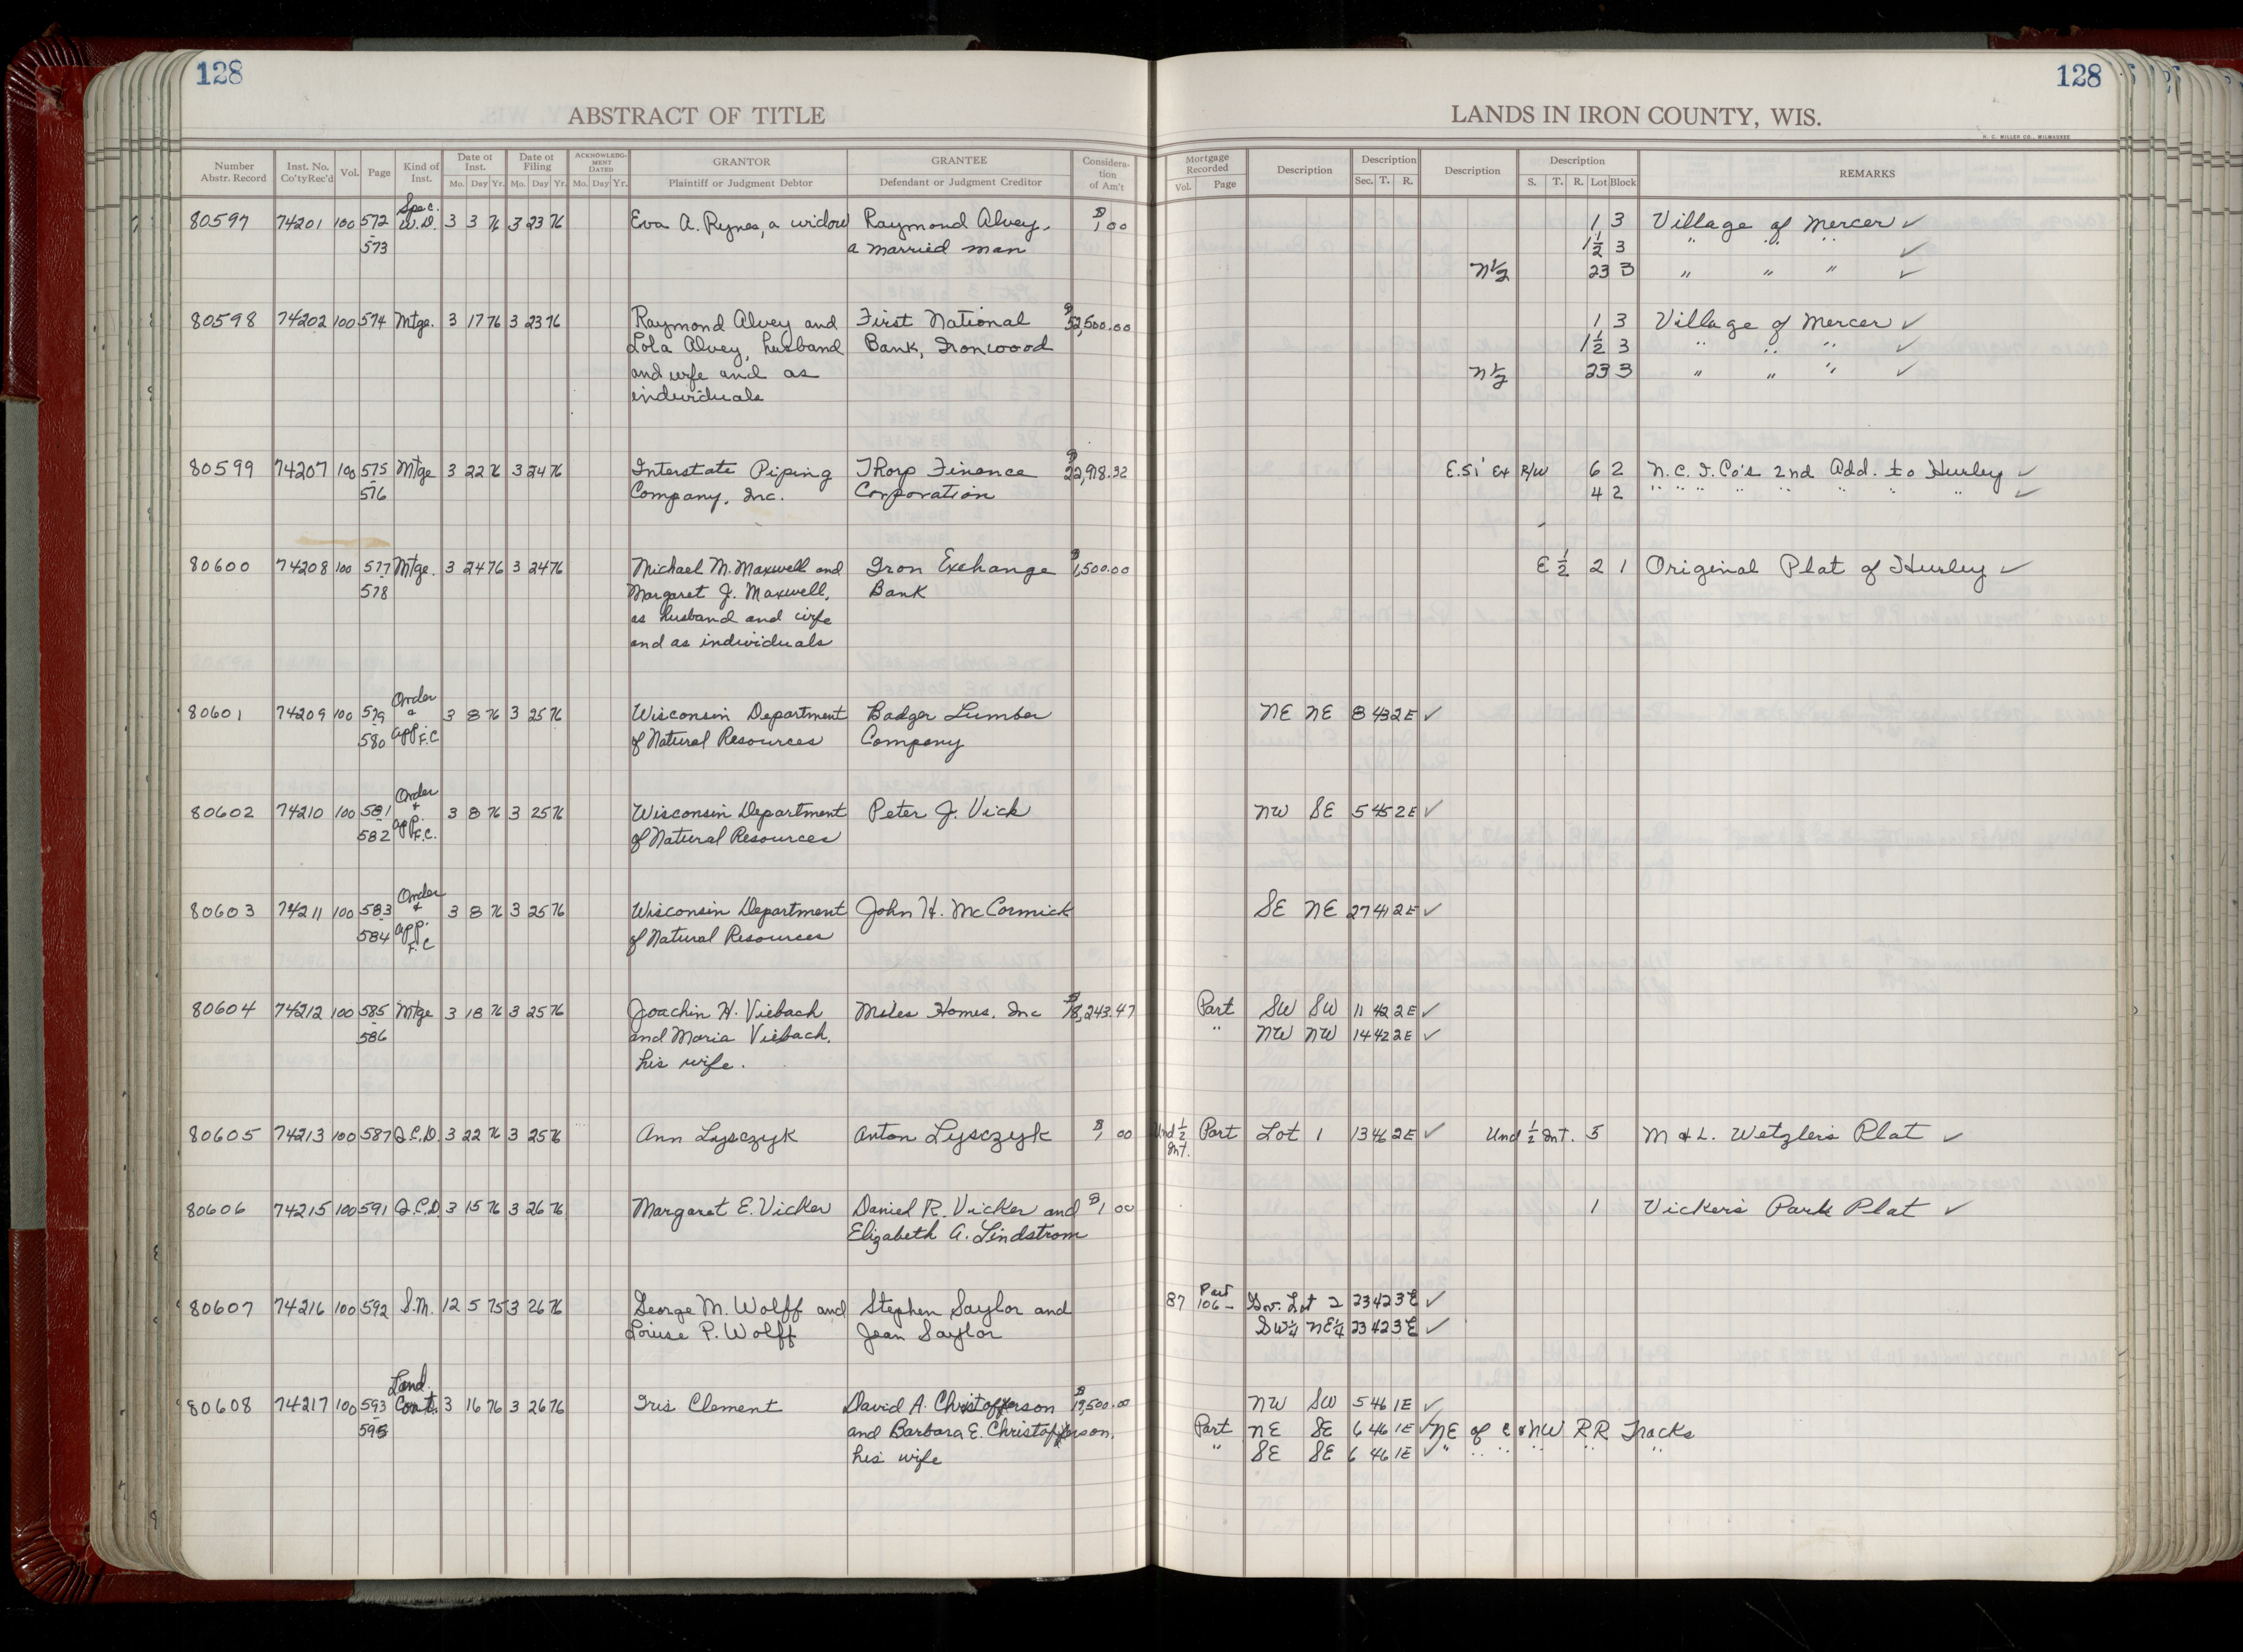 128
128
ABSTRACT OF TITLE
LANDS IN IRON COUNTY, WIS.
H. C. MILLER CO., MILWAUKEE
Number Abstr. Record Inst. No. Co'ty Rec'd Vol. Page Kind of Inst. Date of Inst. Mo. Day Yr. Date of Filing Mo. Day Yr. ACKNOWLEDGMENT DATED Mo. Day Yr. GRANTOR Plaintiff or Judgment Debtor GRANTEE Defendant or Judgment Creditor Consideration of Am't
Mortgage Recorded Vol. Page Description Description Sec. T. R. Description Description S. T. R. Lot Block REMARKS
80597 74201 100 572 Spec. W.D. 3 3 76 3 23 76 Eva A. Rynes, a widow Raymond Alvey, $1.00 1 3 Village of Mercer ✓
- 573 a married man 1½ 3 " " " ✓
N½ 23 3 " " " ✓
80598 74202 100 574 Mtge. 3 17 76 3 23 76 Raymond Alvey and First National $52,500.00 1 3 Village of Mercer ✓
Lola Alvey, husband Bank, Ironwood 1½ 3 " " " ✓
and wife and as N½ 23 3 " " " ✓
individuals
80599 74207 100 575 Mtge 3 22 76 3 24 76 Interstate Piping Thorp Finance $22,918.32 E.51' Ex R/W 6 2 N.C.I.Co's 2nd Add. to Hurley ✓
- 576 Company, Inc. Corporation 4 2 " " " " " " " ✓
80600 74208 100 577 Mtge. 3 24 76 3 24 76 Michael M. Maxwell and Iron Exchange $1,500.00 E ½ 2 1 Original Plat of Hurley ✓
- 578 Margaret J. Maxwell, Bank
as husband and wife
and as individuals
80601 74209 100 579 Order & App. F.C 3 8 76 3 25 76 Wisconsin Department Badger Lumber NE NE 8 43 2E ✓
- 580 of Natural Resources Company
80602 74210 100 581 Order & App. F.C. 3 8 76 3 25 76 Wisconsin Department Peter J. Vick NW SE 5 45 2E ✓
- 582 of Natural Resources
80603 74211 100 583 Order & App. F.C 3 8 76 3 25 76 Wisconsin Department John H. McCormick SE NE 27 41 2E ✓
- 584 of Natural Resources
80604 74212 100 585 Mtge 3 18 76 3 25 76 Joachin H. Viebach Miles Homes, Inc $18,243.47 Part SW SW 11 42 2E ✓
- 586 and Maria Viebach, " NW NW 14 42 2E ✓
his wife.
80605 74213 100 587 Q.C.D. 3 22 76 3 25 76 Ann Lysczyk Anton Lysczyk $1.00 Und ½ Int. Part Lot 1 13 46 2E ✓ Und ½ Int. 5 M & L. Wetzler's Plat ✓
80606 74215 100 591 Q.C.D 3 15 76 3 26 76 Margaret E. Vicker Daniel R. Vicker and $1.00 1 Vicker's Park Plat ✓
Elizabeth A. Lindstrom
80607 74216 100 592 S.M. 12 5 75 3 26 76 George M. Wolff and Stephen Saylor and 87 106 - Part Gov. Lot 2 23 42 3E ✓
Louise P. Wolff Jean Saylor SW¼ NE¼ 23 42 3E ✓
80608 74217 100 593 Land Cont. 3 16 76 3 26 76 Iris Clement David A. Christofferson $19,500.00 NW SW 5 46 1E ✓
- 595 and Barbara E. Christofferson, Part NE SE 6 46 1E ✓ NE of C & NW RR Tracks
his wife " SE SE 6 46 1E ✓ " " " " " "